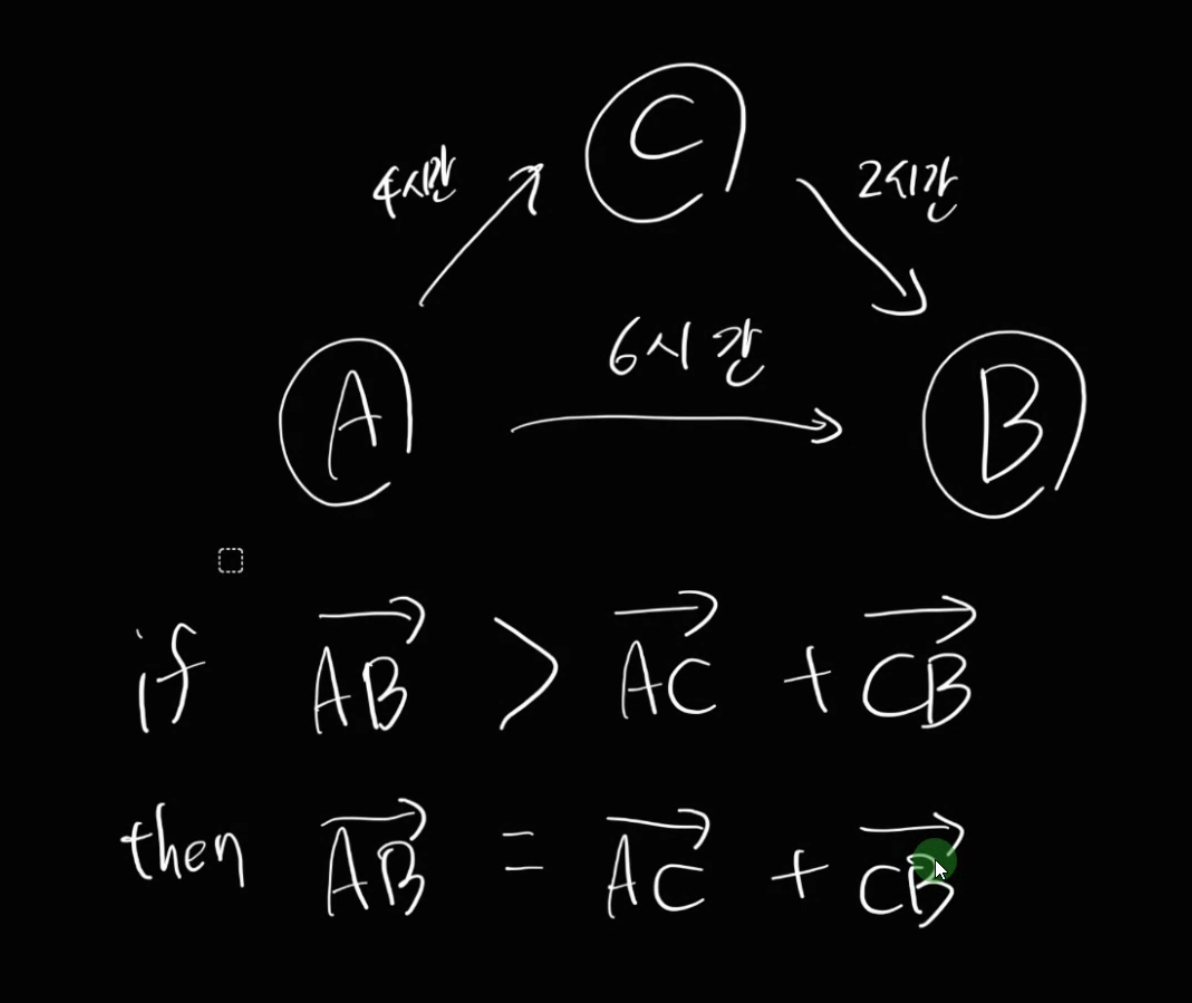 C
4시간
2시간
6시간
A
B
if AB > AC + CB
then AB = AC + CB